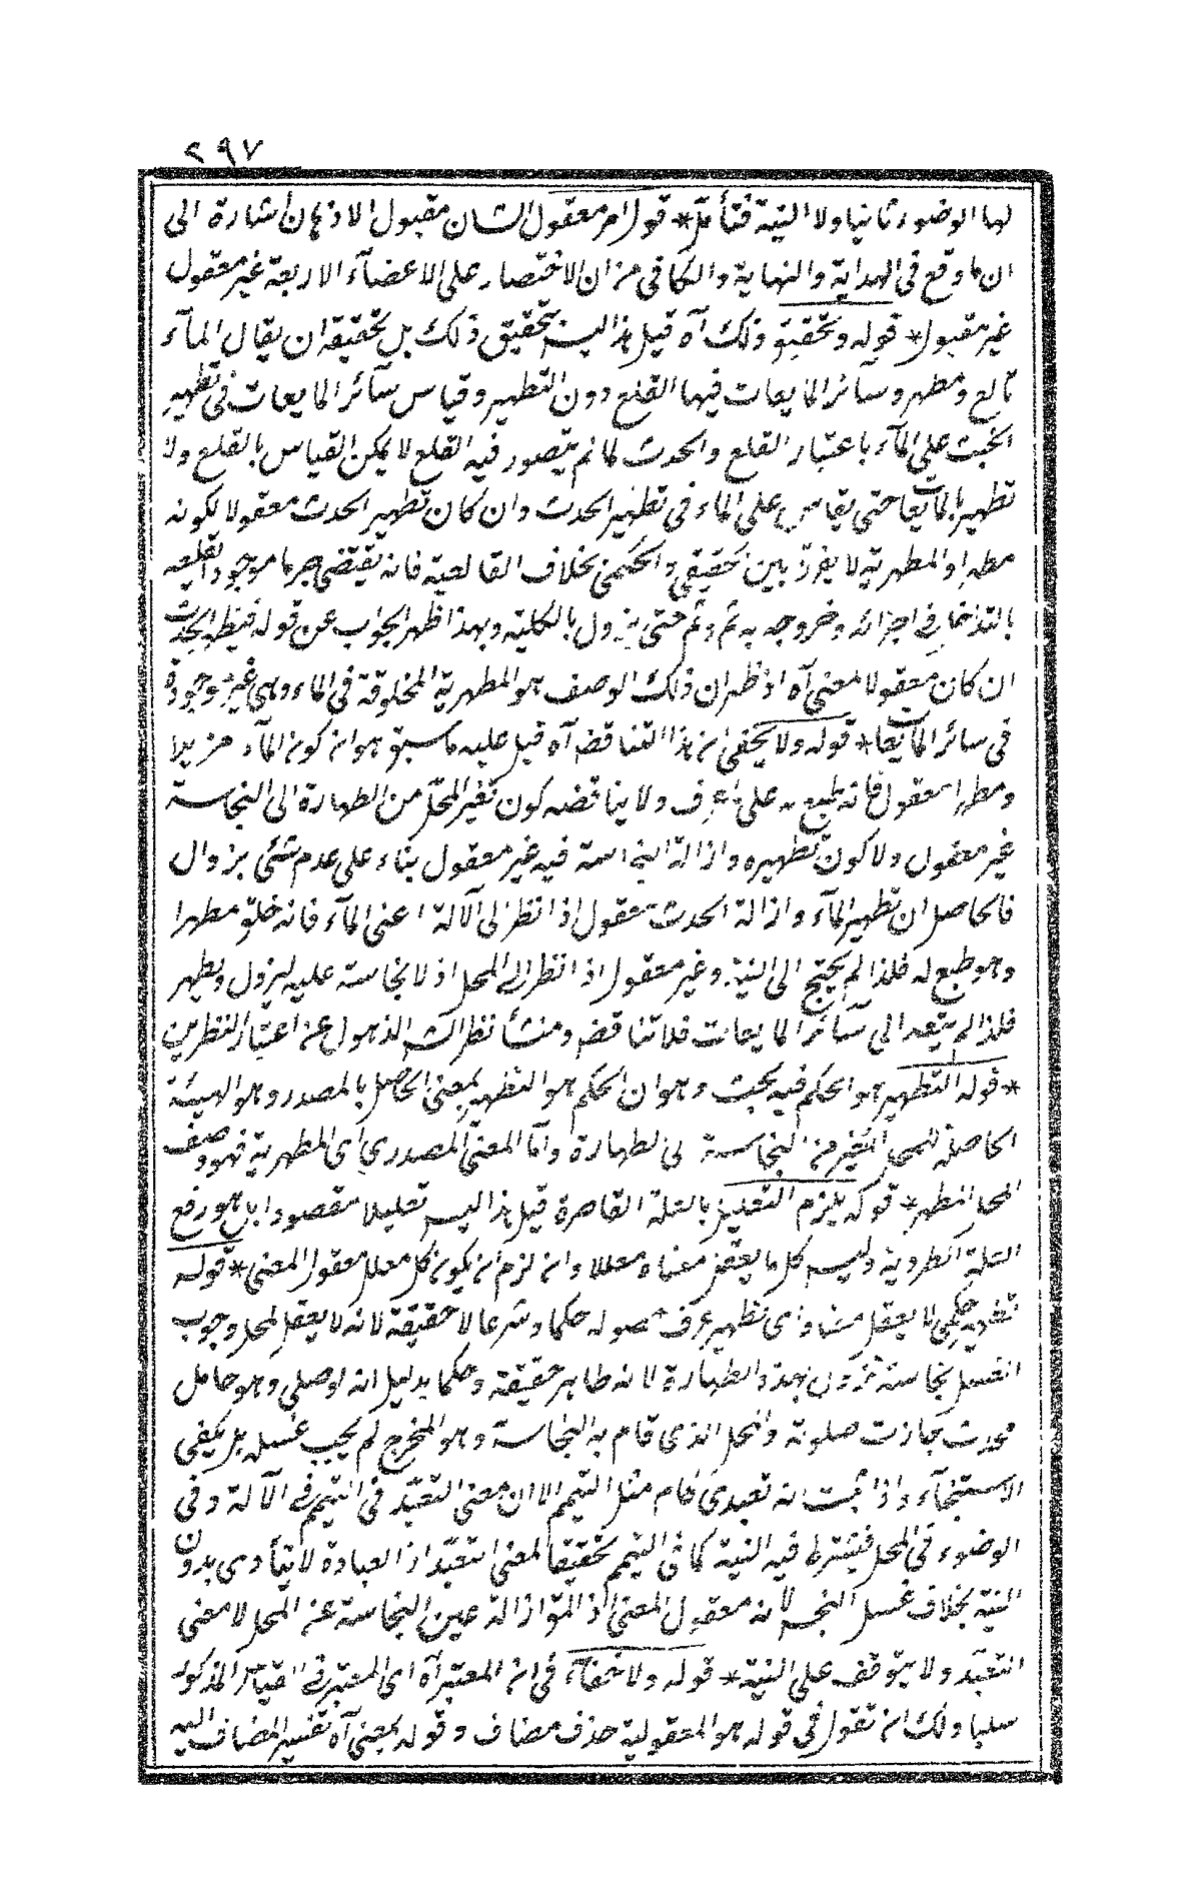 ٢٩٧
لها الوضوء ثانيا ولا النية فتأمل * قوله امر معقول الشان مقبول الاذهان اشارة الى
ان ما وقع فى الهداية والنهاية والكافى من ان الاقتصار على الاعضآء الاربعة غير معقول
غير مقبول * قوله وتحقيق ذلك آه قيل هذا ليس تحقيق ذلك بل تحقيقه ان يقال المآء
قالع ومطهر وسآئر المايعات فيها القلع دون التطهير وقياس سآئر المايعات فى تطهير
الخبث على المآء باعتبار القلع والحدث لما لم يتصور فيه القلع لا يمكن القياس بالقلع ولا
تطهير بالمايعات حتى يقاس على الماء فى تطهير الحدث وان كان تطهير الحدث معقولا لكونه
مطهرا والمطهرية لا يفرق بين حقيقى والحكمى بخلاف القالعية فانه يقتضى جرما موجودا يقلعه
بالتداخل فى اجزائه وخروجه به ثم وثم حتى يزول بالكلية وبهذا ظهر الجواب عن قوله فتطهير الحدث
ان كان معقولا معنى آه اذ ظهر ان ذلك الوصف هو المطهرية المخلوقة فى الماء وهى غير موجودة
فى سائر المايعات * قوله ولا يخفى ان هذا التناقض آه قيل عليه ما سبق هو ان كون المآء مزيلا
ومطهرا معقول فانه بطبعه على ما عرف ولا يناقضه كون تغير المحل من الطهارة الى النجاسة
غير معقول ولا كون تطهيره وازالة النجاسة فيه غير معقول بناء على عدم شئ يزول
فالحاصل ان تطهير المآء وازالة الحدث معقول اذا نظر الى الآلة اعنى المآء فانه خلق مطهرا
وهو طبع له فلذا لم يحتج الى النية وغير معقول اذا نظر الى المحل اذ لا نجاسة عليه ليزول ويطهر
فلذا لم يتعد الى سآئر المايعات فلا تناقض ومنشأ نظر الشم الذهول عن اعتبار النظرين
* قوله التطهير هو الحكم فيه بحث وهو ان الحكم هو التطهير بمعنى الحاصل بالمصدر وهو الهيئة
الحاصلة للمحل المتغير من النجاسة الى الطهارة واما المعنى المصدرى اى المطهرية فهو وصف
المحل المطهر * قوله يلزم التعليل بالعلة القاصرة قيل هذا ليس تعليلا مقصودا بل هو رفع
العلة الطردية وليس كل ما يعقل معناه معللا وان لزم ان يكون كل معلل معقول المعنى * قوله
تطهير حكمى لا يعقل معناه اى تطهير عرف حصوله حكما وشرعا لا حقيقة لانه لا يعقل لمحل وجوب
الغسل نجاسة تزول بهذه الطهارة لانه طاهر حقيقة وحكما بدليل انه لو صلى وهو حامل
محدث جازت صلوته والمحل الذى قام به النجاسة وهو المخرج لم يجب غسله بل يكفى
الاستنجآء واذا ثبت انه تعبدى قام مثل التيمم الا ان معنى التعبد فى التيمم فى الآلة وفى
الوضوء فى المحل فيشترط فيه النية كما فى التيمم تحقيقا لمعنى التعبد اذ العبادة لا يتأدى بدون
النية بخلاف غسل النجس لانه معقول المعنى اذ المق ازالة عين النجاسة عن المحل لا معنى
التعبد ولا يتوقف على النية * قوله ولا خفآء فى ان المعتبر آه اى المعتبر فى القياس المذكور
سلبا ولك ان تقول فى قوله هو المعقولية حذف مضاف وقوله بمعنى آه تفسير المضاف اليه